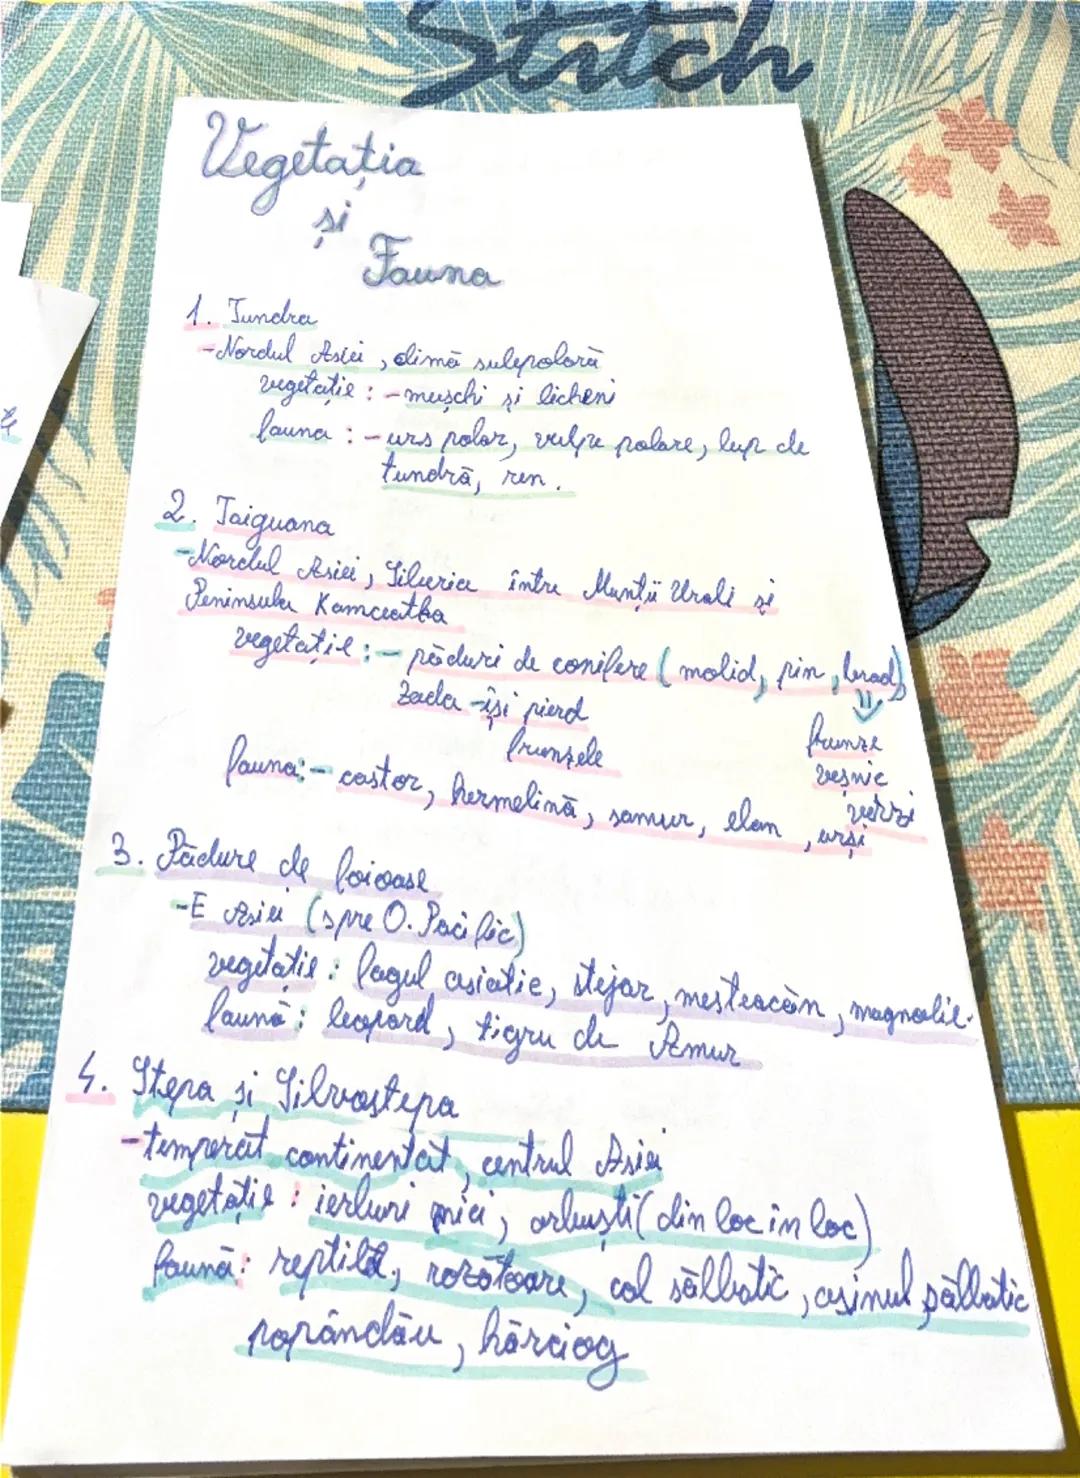 Stitch
Vegetația
și
Fauna
1. Tundra
-Nordul Asiei, climă subpolară
vegetație: - mușchi și licheni
fauna: - urs polar, vulpe polare, lup de
tundră, ren.
2. Taiguana
-Nordul Asiei, Siberia între Munții Urali și
Peninsula Kamceatka
vegetație: - păduri de conifere (molid, pin, brad)
zada - își pierd
frunzele
frunze
veșnic
verzi
fauna: - castor, hermelină, samur, elan, urși
3. Pădure de foioase
-E Asiei (spre O. Pacific)
vegetație: fagul asiatic, stejar, mesteacăn, magnolie.
faună: leopard, tigru de Amur
4. Stepa și Silvostepa
-temperat continental, centrul Asiei
vegetație: ierburi mici, arbuști (din loc în loc)
faună: reptile, rozătoare, cal sălbatic, asinul sălbatic
popândău, hârciog